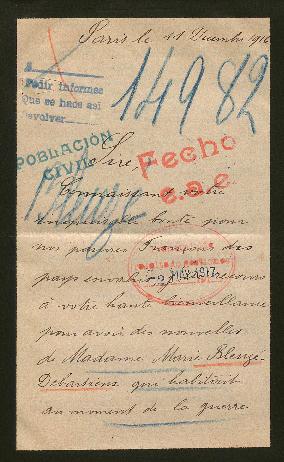 Paris le 21 Décembre 1916
A
Pedir informes
Que se hace así
Devolver
14982
POBLACIÓN
CIVIL
Sire,
Fecho
e.a.e.
Connaissant votre
inépuisable bonté pour
nos pauvres Français des
pays envahis, je recours
2 MAY 1917
à votre haute bienveillance
pour avoir des nouvelles
de Madame Marie Bleuze-
Debarsiens qui habitait
au moment de la guerre